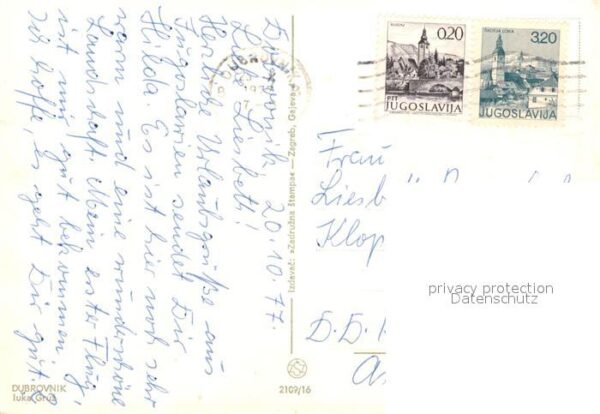 Dubrovnik 20.10.77.
Liebe Liesbeth!
Herzliche Urlaubsgrüße aus
Jugoslavien sendet Dir
Hilda. Es ist hier noch sehr
warm und eine wunderschöne
Landschaft. Mein erster Flug,
ist mir gut bekommen.
Ich hoffe, es geht Dir gut
DUBROVNIK
luka Gruž
Izdavač: »Zadružna štampa« — Zagreb, Gajeva
2109/16
0,20
PTT
JUGOSLAVIJA
ŠKOFJA LOKA
3,20
JUGOSLAVIJA
DUBR
Frau
Liesb
Klop
privacy protection
Datenschutz